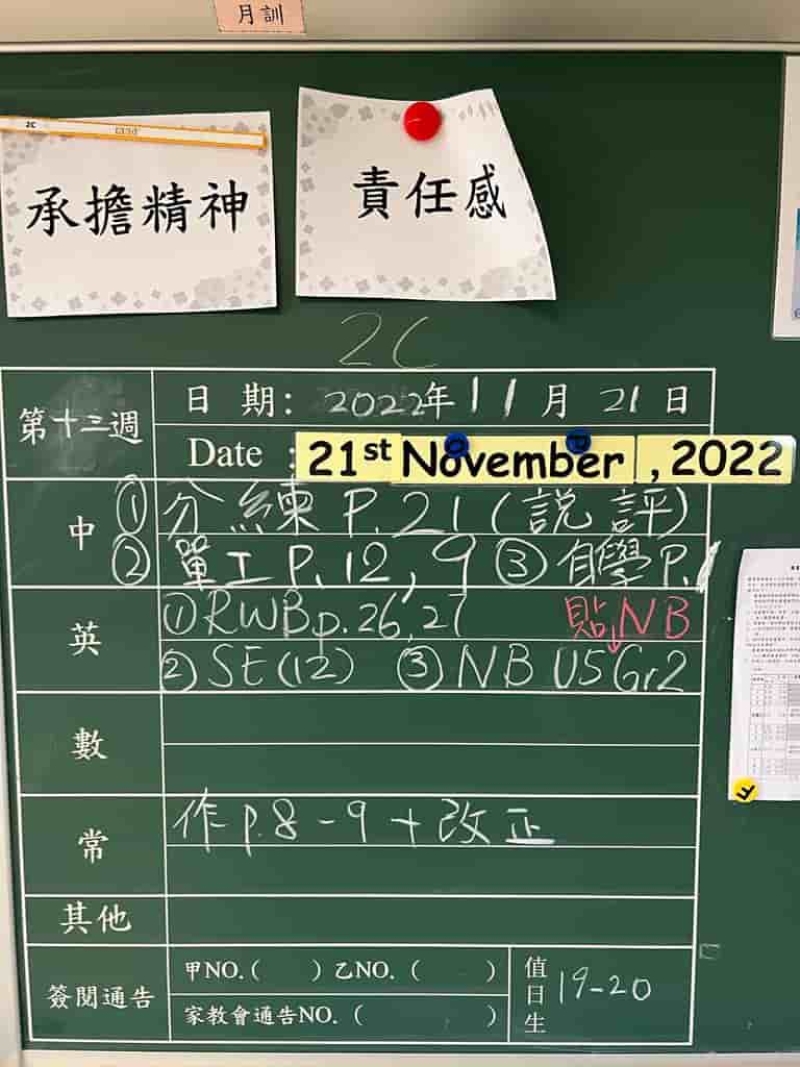 月訓
2C
承擔精神
責任感
2C
第十三週
日 期: 2022年 11月 21日
Date : 21st November, 2022
中
① 分練 P.21 (說評)
② 單工 P.12, 9 ③ 自學P.1
英
① RWB p.26,27 貼NB
② SE(12) ③ NB U5Gr2
數
常
作 p.8-9 + 改正
其他
簽閱通告
甲NO.( ) 乙NO. ( )
家教會通告NO. ( )
值日生 19-20